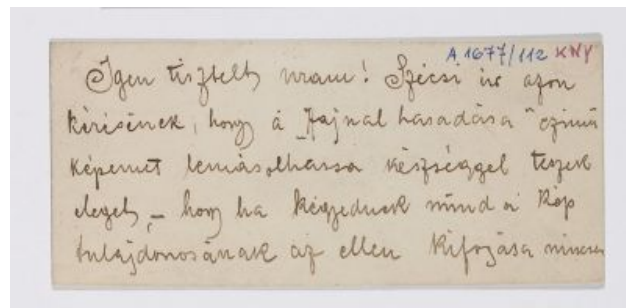 A 1677/112 KNY
Igen tisztelt uram! Szécsi úr azon
kérésének, hogy a „Hajnal hasadása" czimü
képemet lemásolhassa készséggel teszek
eleget, – hogy ha kegyednek mind a kép
tulajdonosának az ellen kifogása nincsen